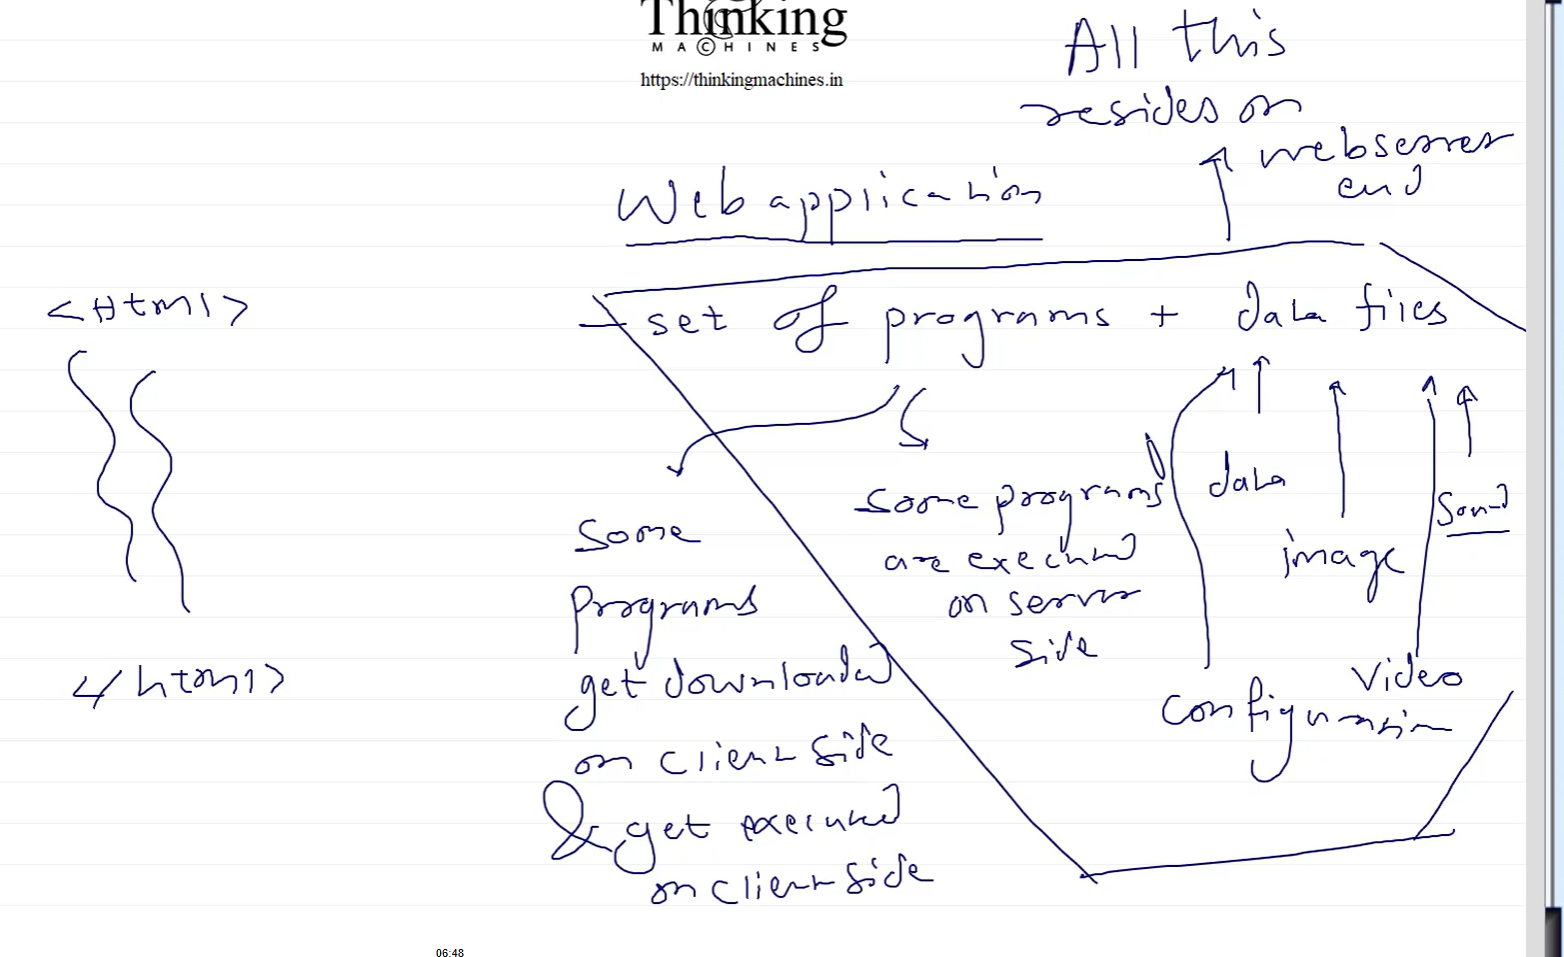 Thinking
MACHINES
https://thinkingmachines.in
All this
resides on
webserver
end
Web application
<Html>
</html>
- set of programs + data files
some
programs
get downloaded
on client side
& get executed
on client side
some programs
are executed
on server
side
data
image
Sound
Video
configuration
06:48